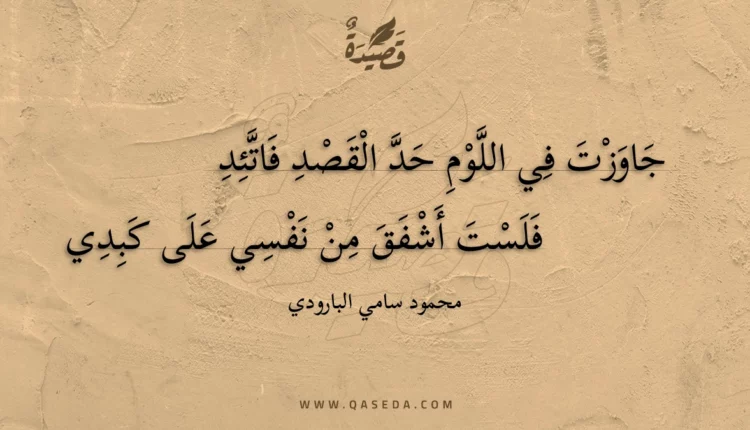 قَصِيدَةٌ
جَاوَزْتَ فِي اللَّوْمِ حَدَّ الْقَصْدِ فَاتَّئِدِ
فَلَسْتَ أَشْفَقَ مِنْ نَفْسِي عَلَى كَبِدِي
محمود سامي البارودي
WWW.QASEDA.COM